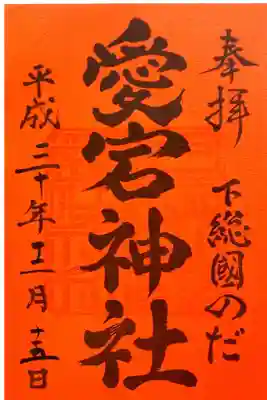 奉拝
下総國のだ
愛宕神社
平成三十年十一月十五日